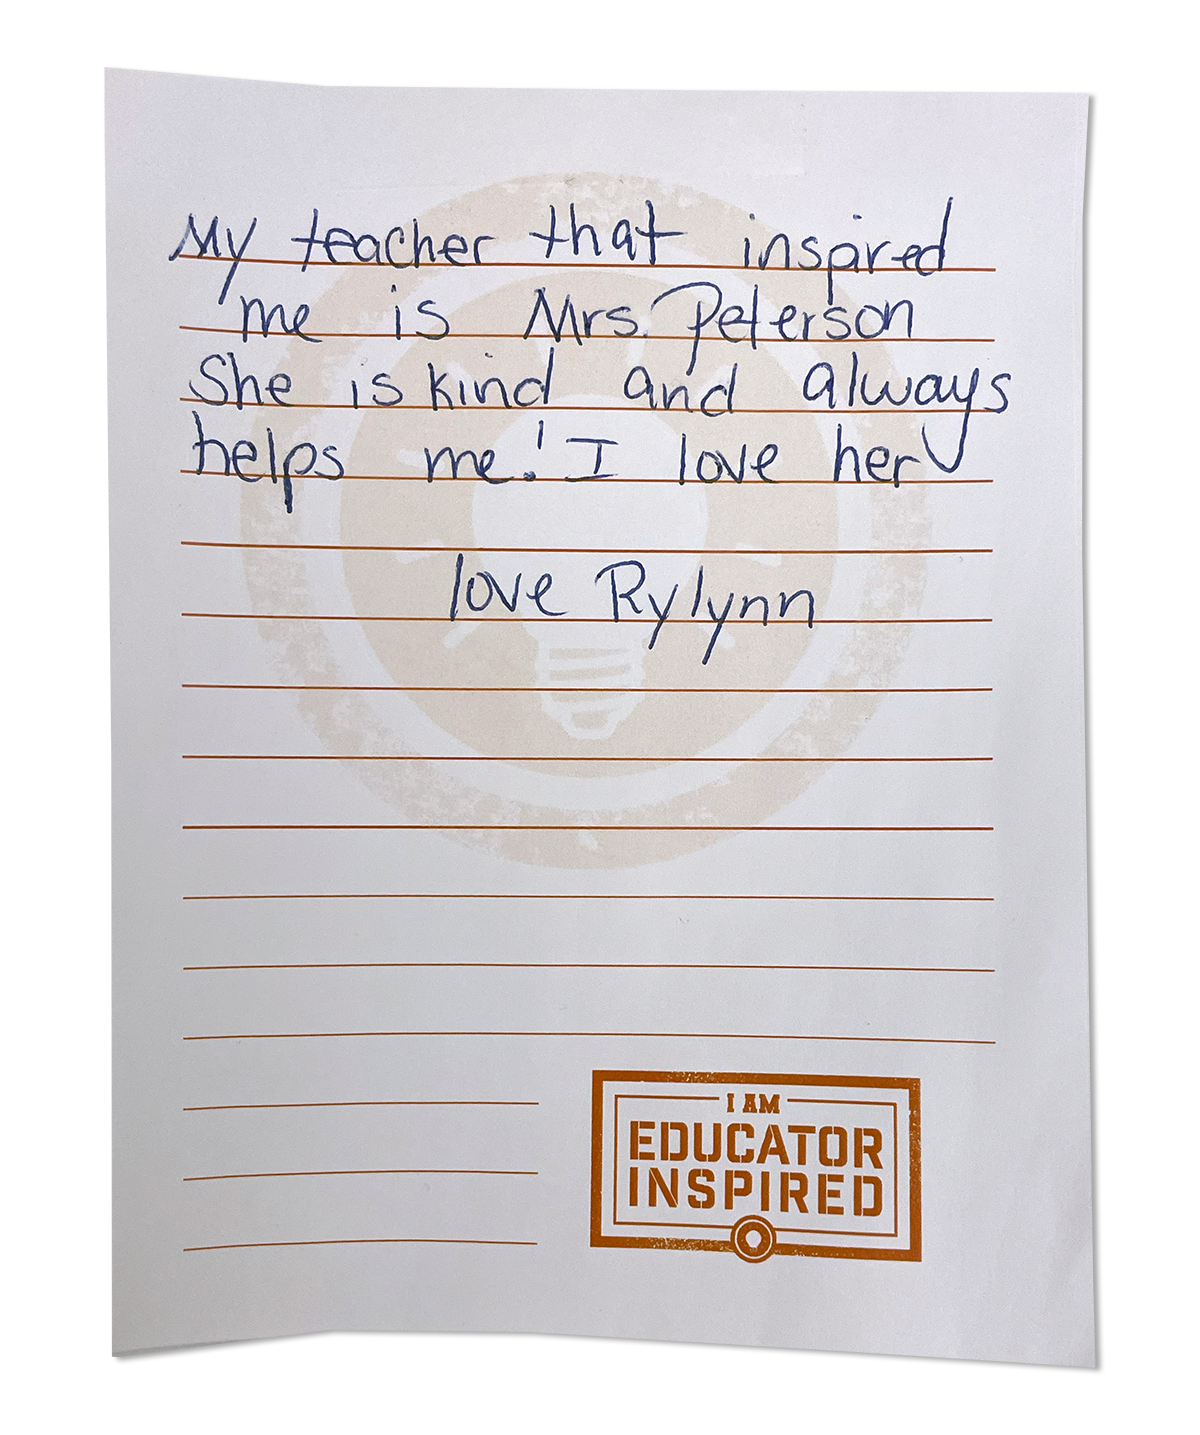 My teacher that inspired
me is Mrs. Peterson
She is kind and always
helps me! I love her
love Rylynn
I AM
EDUCATOR
INSPIRED